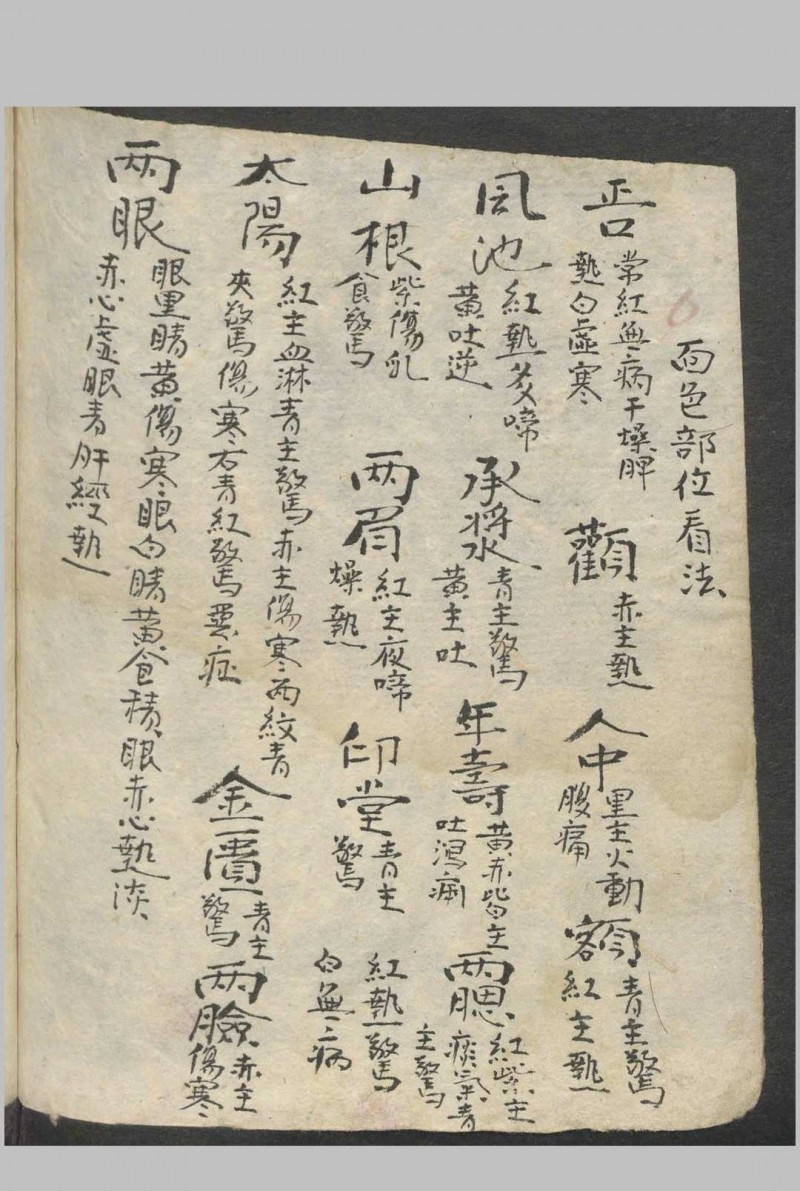 面色部位看法
唇口 常紅無病干燥脾
熱白虛寒
顴 赤主熱
人中 黑主火動
腹痛
額 青主驚
紅主熱
風池 紅熱多啼
黃吐逆
承漿 青主驚
黃主吐
年壽 黃赤皆主
吐瀉痢
兩腮 紅紫主
痰氣青
主驚
山根 紫傷乳
食驚
兩眉 紅主夜啼
燥熱
印堂 青主
驚
紅熱驚
白無病
太陽 紅主血淋青主驚赤主傷寒兩紋青
夾驚傷寒右青紅驚惡症
金匱 青主
驚
兩臉 赤主
傷寒
兩眼 眼黑睛黃傷寒眼白睛黃食積眼赤心熱淡
赤心虛眼青肝經熱